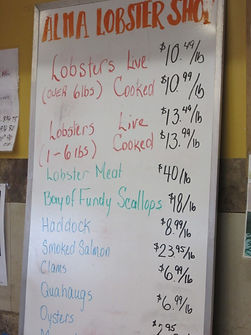 ALMA LOBSTER SHOP
Lobsters Live $10.49/lb
(OVER 6lbs) Cooked $10.99/lb
Lobsters Live $13.49/lb
(1-6lbs) Cooked $13.99/lb
Lobster Meat $40/lb
Bay of Fundy Scallops $18/lb
Haddock $8.99/lb
Smoked Salmon $23.95/lb
Clams $6.99/lb
Quahaugs $6.99/lb
Oysters